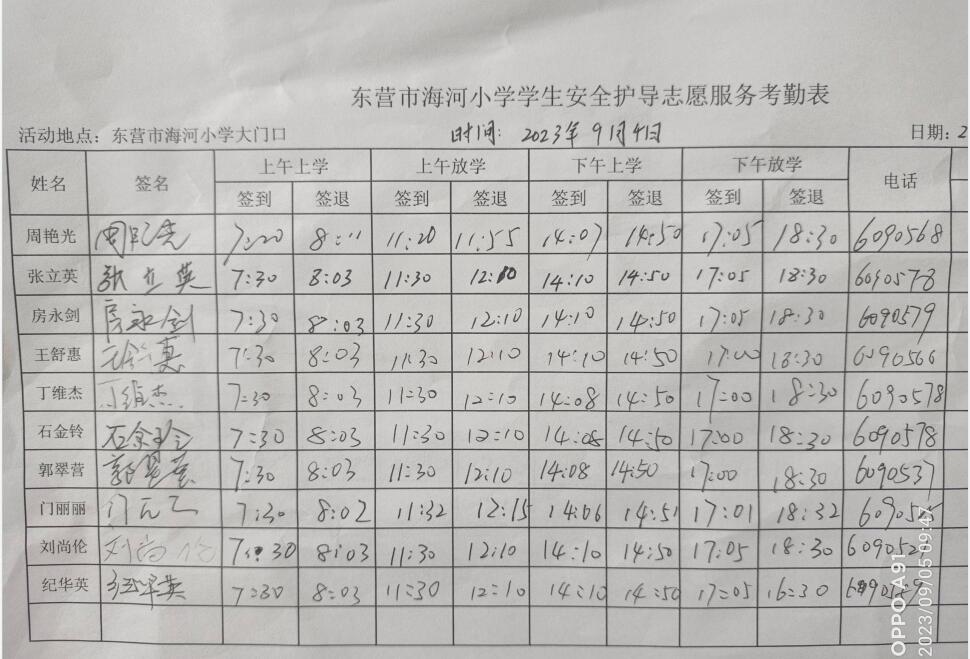 东营市海河小学学生安全护导志愿服务考勤表
活动地点：东营市海河小学大门口 时间：2023年9月4日 日期：2
姓名 签名 上午上学 上午放学 下午上学 下午放学 电话
签到 签退 签到 签退 签到 签退 签到 签退
周艳光 周艳光 7:20 8:11 11:20 11:55 14:07 14:50 17:05 18:30 6090568
张立英 张立英 7:30 8:03 11:30 12:10 14:10 14:50 17:05 18:30 6090578
房永剑 房永剑 7:30 8:03 11:30 12:10 14:10 14:50 17:05 18:30 6090579
王舒惠 王舒惠 7:30 8:03 11:30 12:10 14:10 14:50 17:00 18:30 6090566
丁维杰 丁维杰 7:30 8:03 11:30 12:10 14:08 14:50 17:00 18:30 6090578
石金铃 石金玲 7:30 8:03 11:30 12:10 14:08 14:50 17:00 18:30 6090578
郭翠营 郭翠营 7:30 8:03 11:30 12:10 14:08 14:50 17:00 18:30 6090537
门丽丽 7:30 8:02 11:32 12:15 14:06 14:51 17:01 18:32
刘尚伦 刘尚伦 7:30 8:03 11:30 12:10 14:10 14:50 17:05 18:30
纪华英 纪华英 7:30 8:03 11:30 12:10 14:10 14:50 17:05 16:30
OPPO A91
2023/09/05 09:47